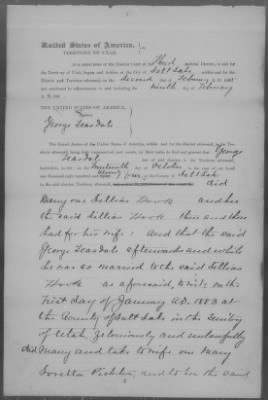 United States of America,
TERRITORY OF UTAH.
At a stated term of the District Court of the Third Judicial District, in and for
the Territory of Utah, begun and holden at the City of Salt Lake within and for the
District and Territory aforesaid, on the second day of February A. D. 188
and continued by adjournments to and including the ninth day of February
A. D. 188
THE UNITED STATES OF AMERICA,
versus
George Teasdale
The Grand Jurors of the United States of America, within and for the district aforesaid, in the
Territory aforesaid, being duly empanneled and sworn, on their oaths do find and present that George
Teasdale late of said district in the Territory aforesaid,
heretofore, to-wit: on the day of October in the year of our Lord
one thousand eight hundred and at the County of Salt Lake
in the said district, Territory aforesaid, did
Marry one Lillias Hook and her
the said Lillias Hook then and there
had for his wife: and that the said
George Teasdale afterwards and while
he was so married to the said Lillias
Hook as aforesaid, to wit: on the
first day of January A.D. 1883 at
the County of Salt Lake in the Territory
of Utah, feloniously and unlawfully
did Marry and take to wife one Mary
Loretta and to her the said